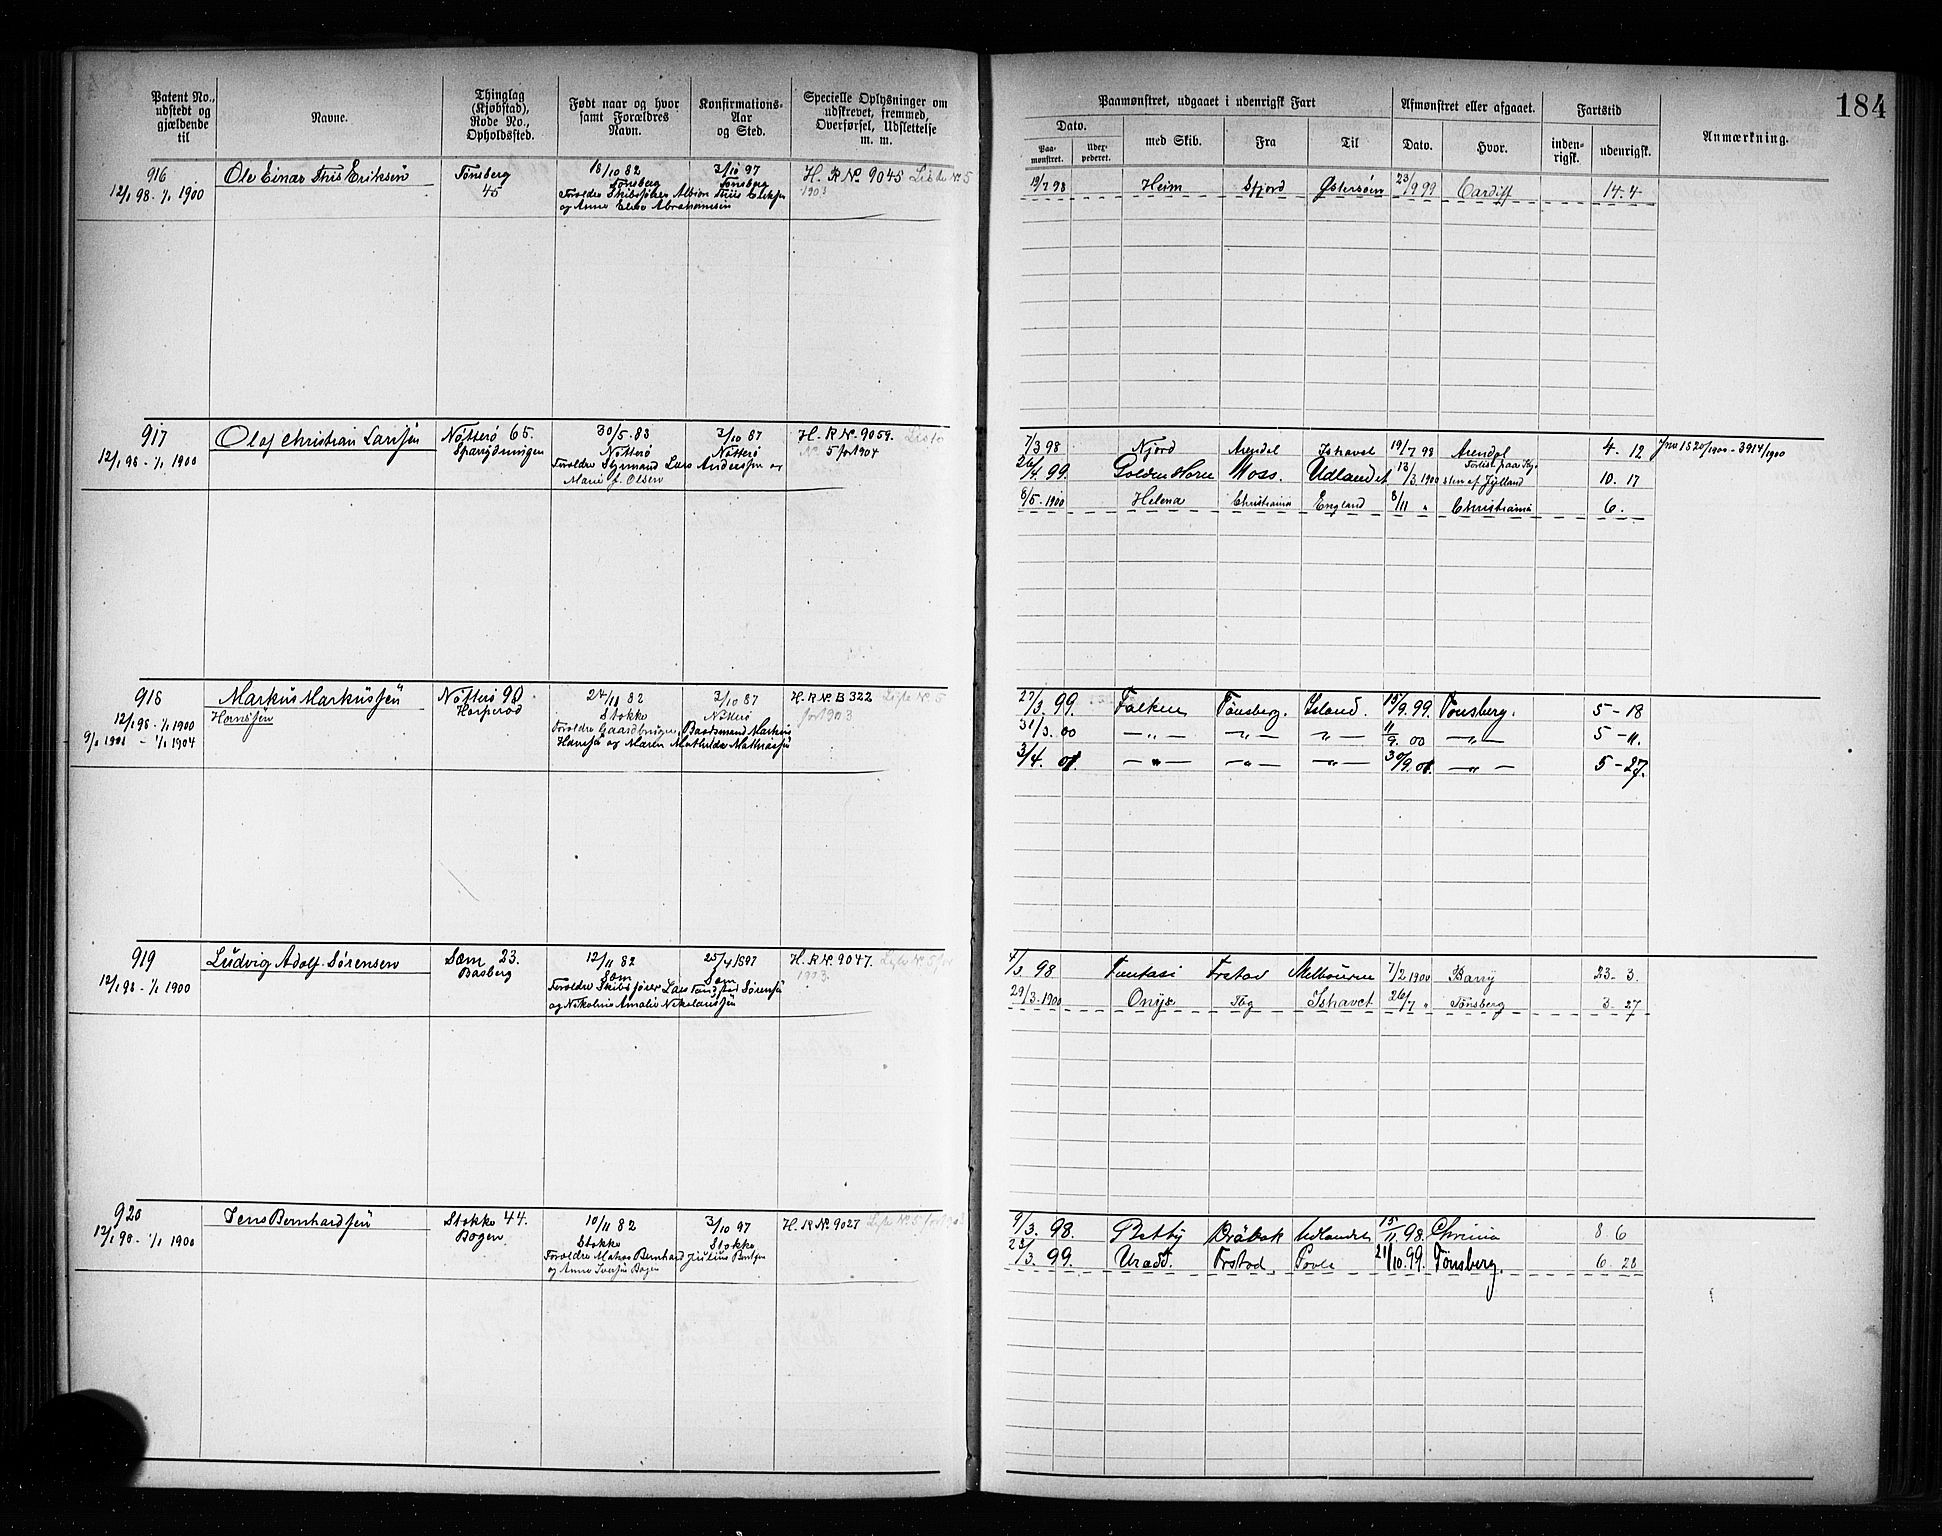 184
Patent No., udstedt og gjældende til
Navne.
Thinglag (Kjøbstad), Rode No., Opholdssted.
Født naar og hvor samt Forældres Navn.
Konfirmations-Aar og Sted.
Specielle Oplysninger om udskrevet, fremmed, Overførsel, Udslettelse m. m.
Paamønstret, udgaaet i udenrigsk Fart
Afmønstret eller afgaaet.
Fartstid
Anmærkning.
Dato.
med Skib.
Fra
Til
Dato.
Hvor.
inden-rigsk.
udenrigsk.
Paa-mønstret.
Udex-pederet.
916 Ole Einar Thiis Eriksen Tønsberg 18/10 82 3/10 97 H. R No. 9045 Liste No. 5
12/1 98 - 1/1 1900 45 Tønsberg Tønsberg 1903
Foreldre Skibsfører Albion Thiis Eriksen
og Anne Elise Abrahamsen
19/7 98 Heim Sfjord Østersøen 23/9 99 Cardiff 14. 4
917 Olaf Christian Larssen Nøtterø 65. 30/5. 83 3/10 87 H. R No. 9059.
12/1 98 - 1/1 1900 Nøtterø Nøtterø 5 for 1904
Foreldre Styrmand Lars Anderssen og
Marie f. Olsen
7/3 98 Njord Arendal Ishavet 19/7 98 Arendal 4. 12 Jno 1520/1900 - 3914/1900
26/4 99. Golden Horn Moss. Udlandet 13/3. 1900 Forlist paa Ky-sten af Jylland 10. 17
8/5. 1900 Helena Christiania England 8/11 " Christiania 6.
918 Markus Markussen Nøtterø 90. 24/11 82 3/10 87 H. R No. B 322 Liste No. 5
12/1 98 - 1/1 1900 Hanssen Harperød Stokke Nøtterø for 1903
9/1 1901 - 1/1 1904 Foreldre Gaardbruger, Baadsmand Markus
Hanssen og Maren Mathilde Mathiassen
27/3. 99. Falken Tønsberg. Island. 15/9. 99. Tønsberg. 5 - 18
31/3. 00 — " — — " — — " — 11/9. 00 — " — 5 - 11.
3/4. 01. — " — — " — — " — 30/9. 01. — " — 5 - 27.
919 Ludvig Adolf Sørensen Sæm 23. 12/11 82 25/4 1897 H. R No. 9047. Liste No. 5 for
12/1 98 - 1/1 1900 Basberg Sæm Sæm 1903.
Foreldre Skibsfører Lars Sørensen
og Nikoline Amalie Nikolaissen
4/3 98 Fantasi Frstad Melbourne 7/2 1900 Barry 23. 3.
29/3. 1900 Onyx Tbg Ishavet 26/7 " Tønsberg 3. 27
920 Jens Bernhardsen Stokke 44. 10/11 82 3/10 97 H. R No. 9027 Liste No. 5 for 1903
12/1 98 - 1/1 1900 Bogen Stokke Stokke
Foreldre Mathias Bernhard Justius Berntsen
og Anne Iversen Bogen
9/3. 98. Betty Drøbak Udlandet 15/11. 98. Chrinia 8 6
28/3. 99. Uradd. Frstad. Poole 21/10. 99. Tønsberg. 6. 28